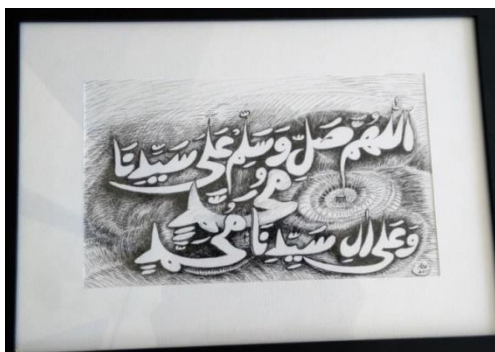 اللَّهُمَّ صَلِّ وَسَلِّمْ عَلَى سَيِّدِنَا
مُحَمَّدٍ
وَعَلَى آلِ سَيِّدِنَا مُحَمَّدٍ